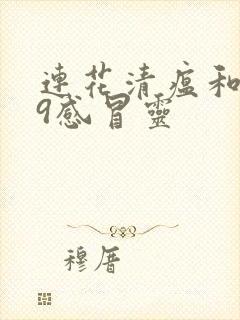 连花清瘟和
9感冒靈
穆厝